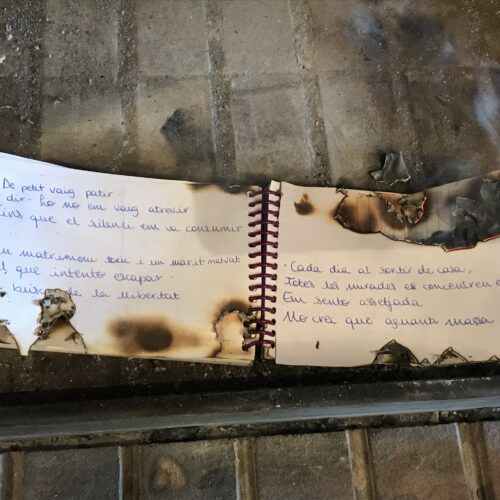 De petit vaig patir
dir-ho no em vaig atrevir
que el silenci em va consumir
matrimoni toxic i un marit malvat
que intento escapar.
busca de la llibertat
Cada dia al sortir de casa,
Totes les mirades es concentren
Em sento assetjada
No crec que aguanti massa